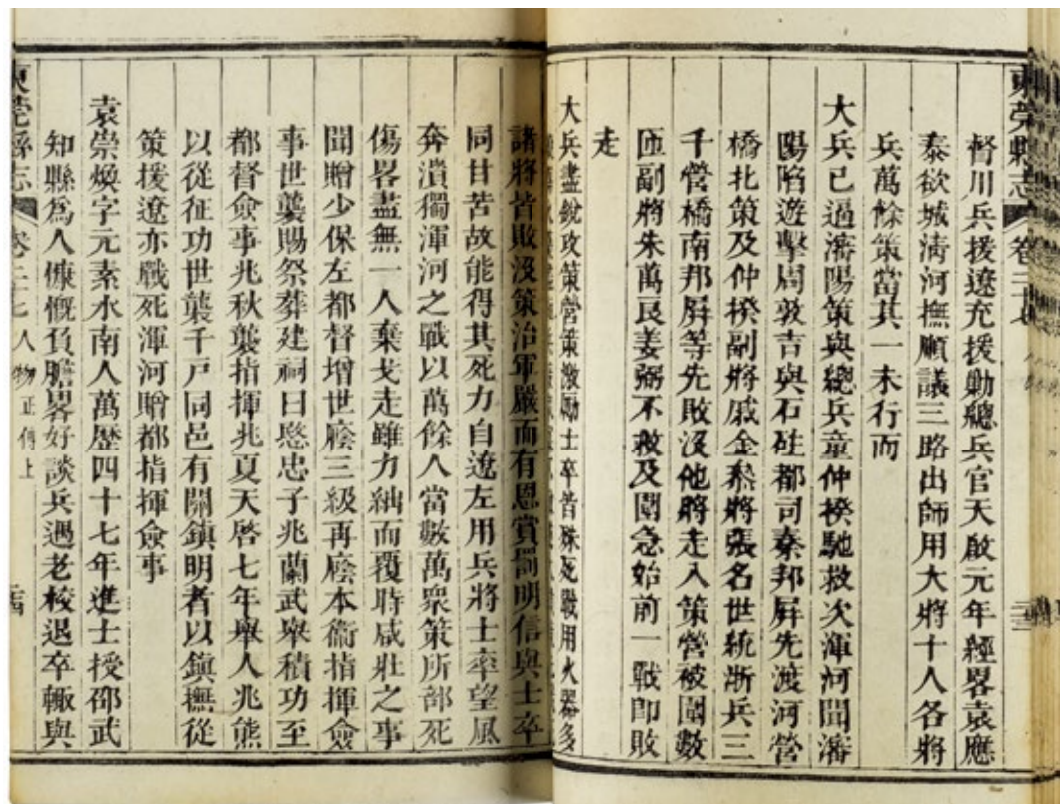 東莞縣志 卷二十七
督川兵援遼充援勦總兵官天啟元年經畧袁應
泰欲城清河撫順議三路出師用大將十人各將
兵萬餘策當其一未行而
大兵已逼瀋陽策與總兵童仲揆馳救次渾河聞瀋
陽陷遊擊周敦吉與石砫都司秦邦屏先渡河營
橋北策及仲揆副將戚金叅將張名世統浙兵三
千營橋南邦屏等先敗沒他將走入策營被圍數
匝副將朱萬良姜弼不救及圍急始前一戰卽敗
走
大兵盡銳攻策營策激勵士卒皆殊死戰用火器多
諸將皆敗沒策治軍嚴而有恩賞罰明信與士卒
同甘苦故能得其死力自遼左用兵將士率望風
奔潰獨渾河之戰以萬餘人當數萬衆策所部死
傷畧盡無一人棄戈走雖力絀而覆時咸壯之事
聞贈少保左都督增世廕三級再廕本衞指揮僉
事世襲賜祭葬建祠曰愍忠子兆蘭武舉積功至
都督僉事兆秋襲指揮兆夏天啓七年舉人兆熊
以從征功世襲千戸同邑有關鎮明者以鎮撫從
策援遼亦戰死渾河贈都指揮僉事
袁崇煥字元素水南人萬歷四十七年進士授邵武
知縣爲人慷慨負膽畧好談兵遇老校退卒輒與
東莞縣志 卷二十七 人物 正傳上